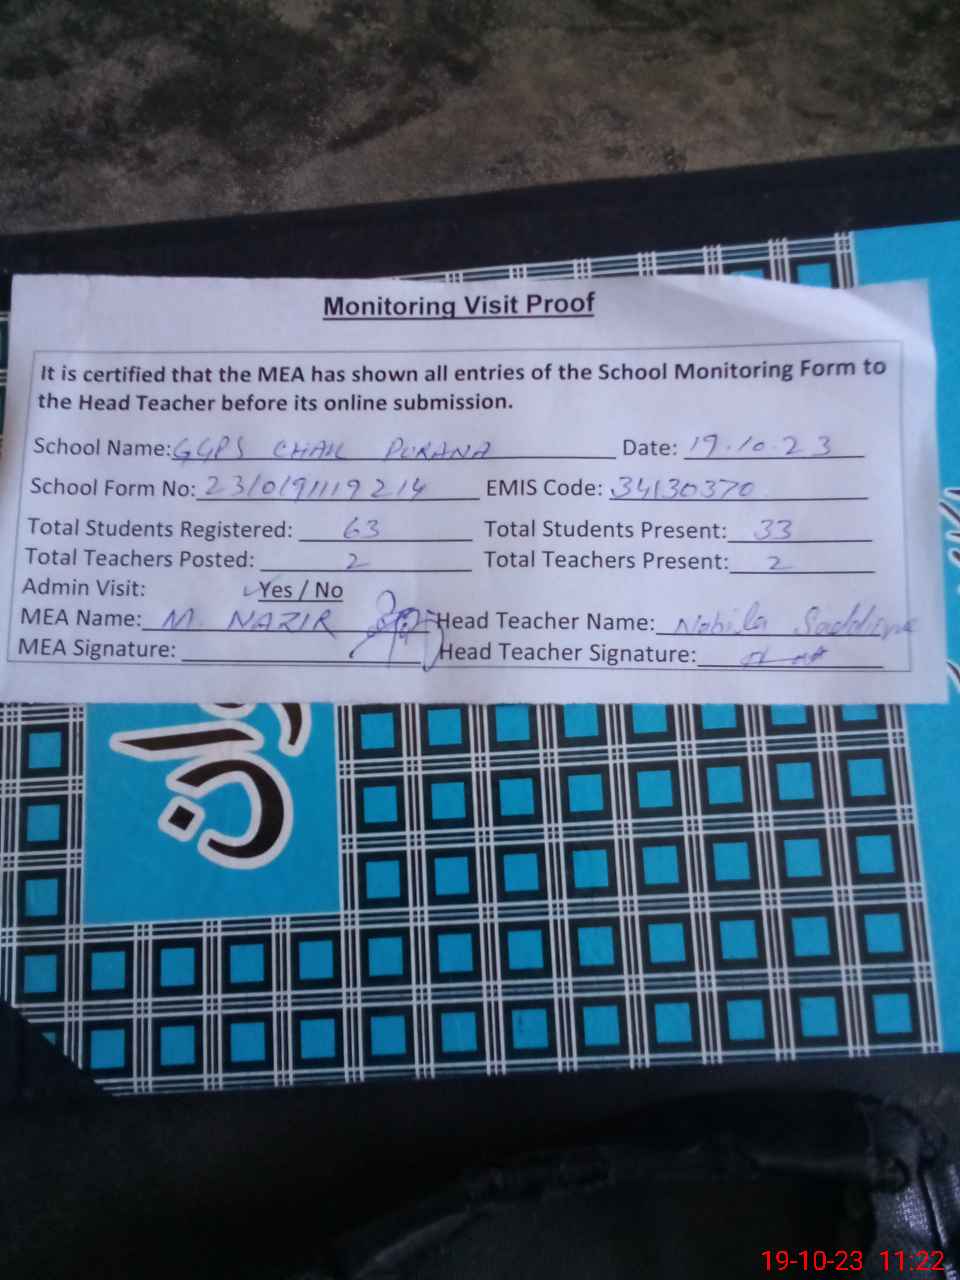 Monitoring Visit Proof
It is certified that the MEA has shown all entries of the School Monitoring Form to
the Head Teacher before its online submission.
School Name: GGPS CHAK PURANA Date: 19.10.23
School Form No: 23/0191119214 EMIS Code: 34130370
Total Students Registered: 63 Total Students Present: 33
Total Teachers Posted: 2 Total Teachers Present: 2
Admin Visit: ✓Yes / No
MEA Name: M. NAZIR Head Teacher Name: Nabila
MEA Signature: Head Teacher Signature:
19-10-23 11:22